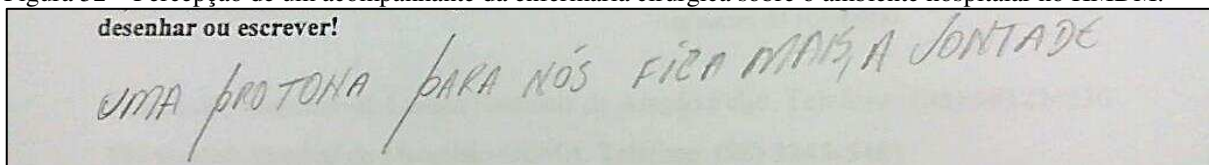 Figura 32 – Percepção de um acompanhante da enfermaria cirúrgica sobre o ambiente hospitalar no HMDM.
desenhar ou escrever!
UMA PROTONA PARA NÓS FICA MAIS, A VONTADE